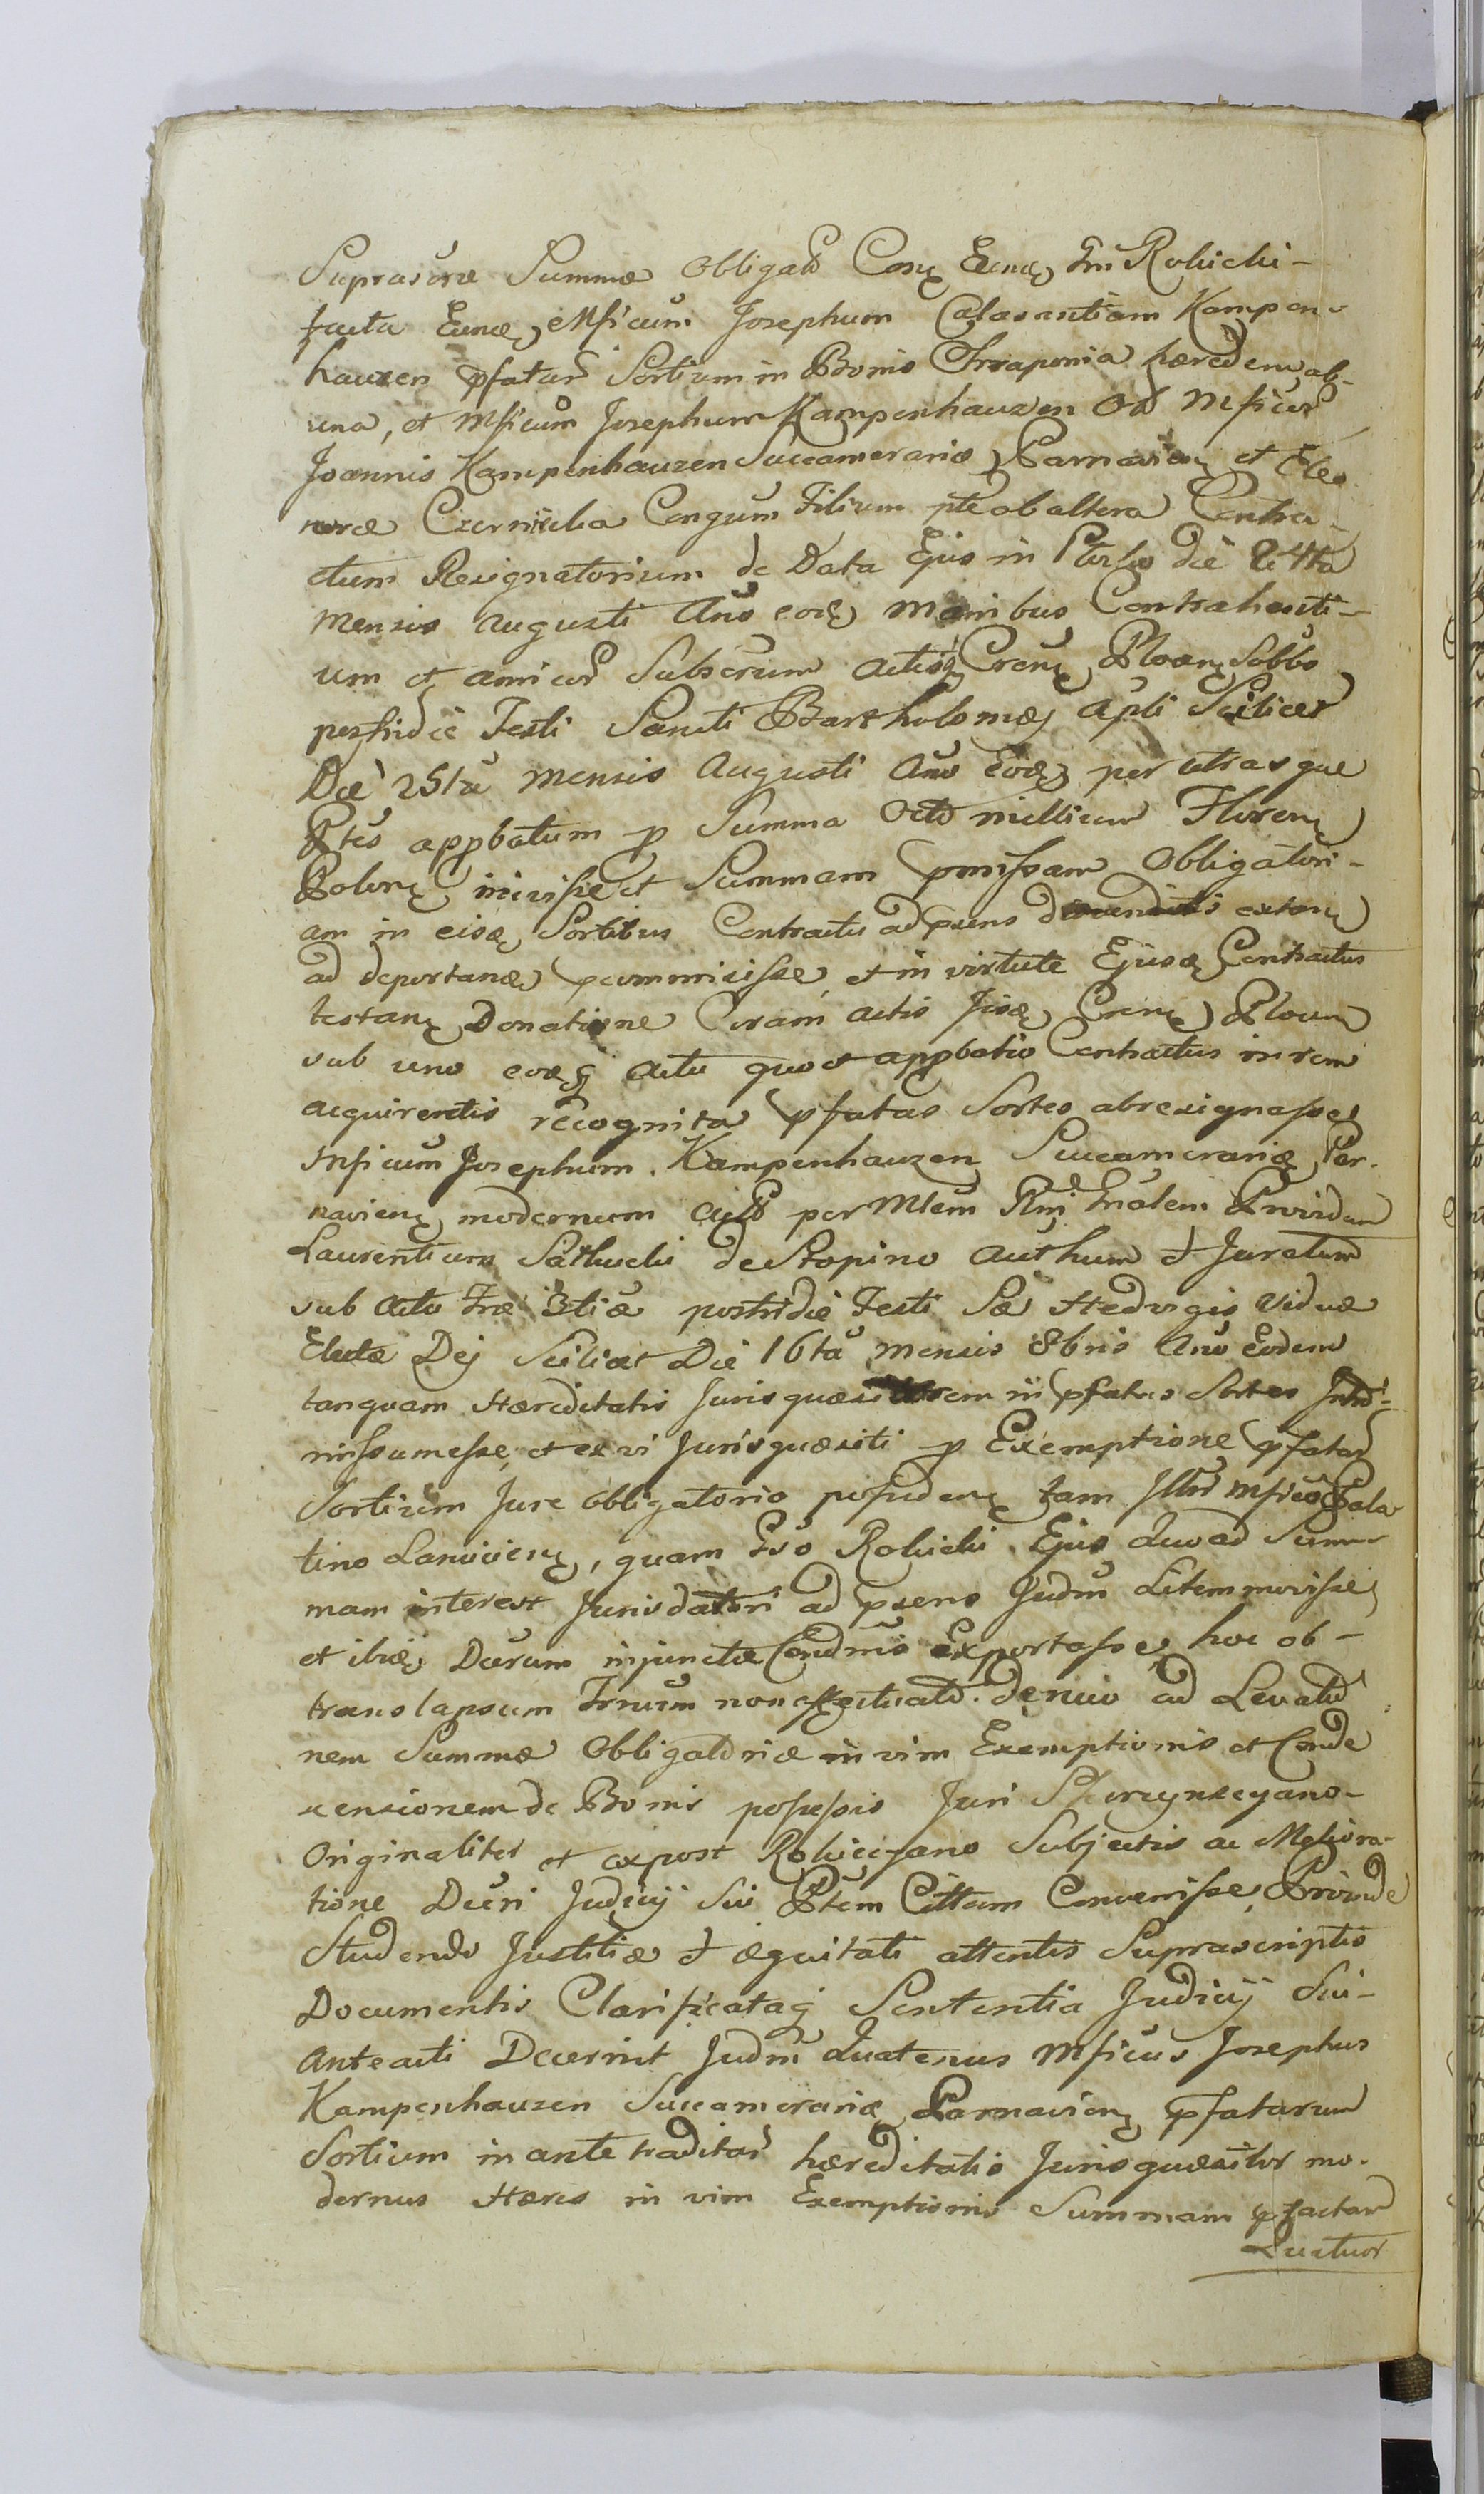 Suprasorae Summae Obligato Conẓ Eunḍ Fm Rokicki-
facta Eundẓ Mficum Josephum Calasantiam Kampen-
hauzen pfatar Sortium in Bonis haeredem, ab-
una, et Mficum Josephum Kampenhauzen Mficor
Joannis Kampenhauzen Succamerariae Parnavienẓ et Eleo
norae Czernicka Congum Filium pte ab altera Contra-
ctum Resignatorium de Data Ejus in die 24ta
Mensis Augusti Ano eodẓ manibus Contrahenti-
um et amicor Subscrum Actisq Crenẓ Plocenẓ Sabbo
postridie Festi Sancti Bartholomaej Apli Scilicet
Die 25ta Mensis Augusti Ano Eodẓ per utrasque
Ptes appbatum p Summa Octo millium Florenẓ
Polonẓ inivisse et Summam pmissam Obligatori-
am in eisdẓ Sortibus Contractu ad psens extanẓ
ad deportandẓ pcommisisse, et in virtute Ejusdẓ Contractus
testanẓ Donatione Coram actis Jisdẓ Crenẓ Plocenẓ
sub uno eodẓq actu quo et appbatio Contractus in rem
acquirentis recognita pfatas Sortes abresignasse
Mficum Josephum Kampenhauzen Succamerariẓ Per-
navienẓ modernum per Mtem Rm Providum
Laurentium de Stopino Authum et Juratum
sub actu Frae 3tiae postridie Festi Sae Hedvigis Viduae
Electae Dej Scilicet Die 16ta mensis 8bris Ano Eodem
tanquam Haereditatis Jurisquaesitorem in pfatas Sortes Intro-
missumesse, et ex vi Jurisquaesiti p Exemptione pfatar
Sortium Jure obligatorio possidenẓ tam Illri Mfico Pala
tino Lancicienẓ, quam Gso Rokicki Ejus quoad Sum-
mam interest Jurisdatori ad psens Judm Litem movisse
et ibidẓ Decrum injunctae Condnis Exportasse, hoc ob-
translapsum Trnum non effectuato denuo ad Levatio
nem Summae Obligatoriae in vim Exemptionis et Conde
scensionem de Bonis possessis Juri
Originaliter et expost Rokiciano Subjectis ac Meliora-
tione Decri Judicij Sui Ptem Cittam Convenisse, Proinde
Studendo Justitiae et aequitati attentis Suprascriptis
Documentis Clarificataq Sententia Judicij Sui-
Anteacti Decernit Judm Quatenus Mficus Josephus
Kampenhauzen Succamerariẓ Parnavienẓ pfatarum
Sortium in ante traditar haereditatis Jurisquaesitor mo-
dernus Haeres in vim Exemptionis Summam pfactar
Quatuor